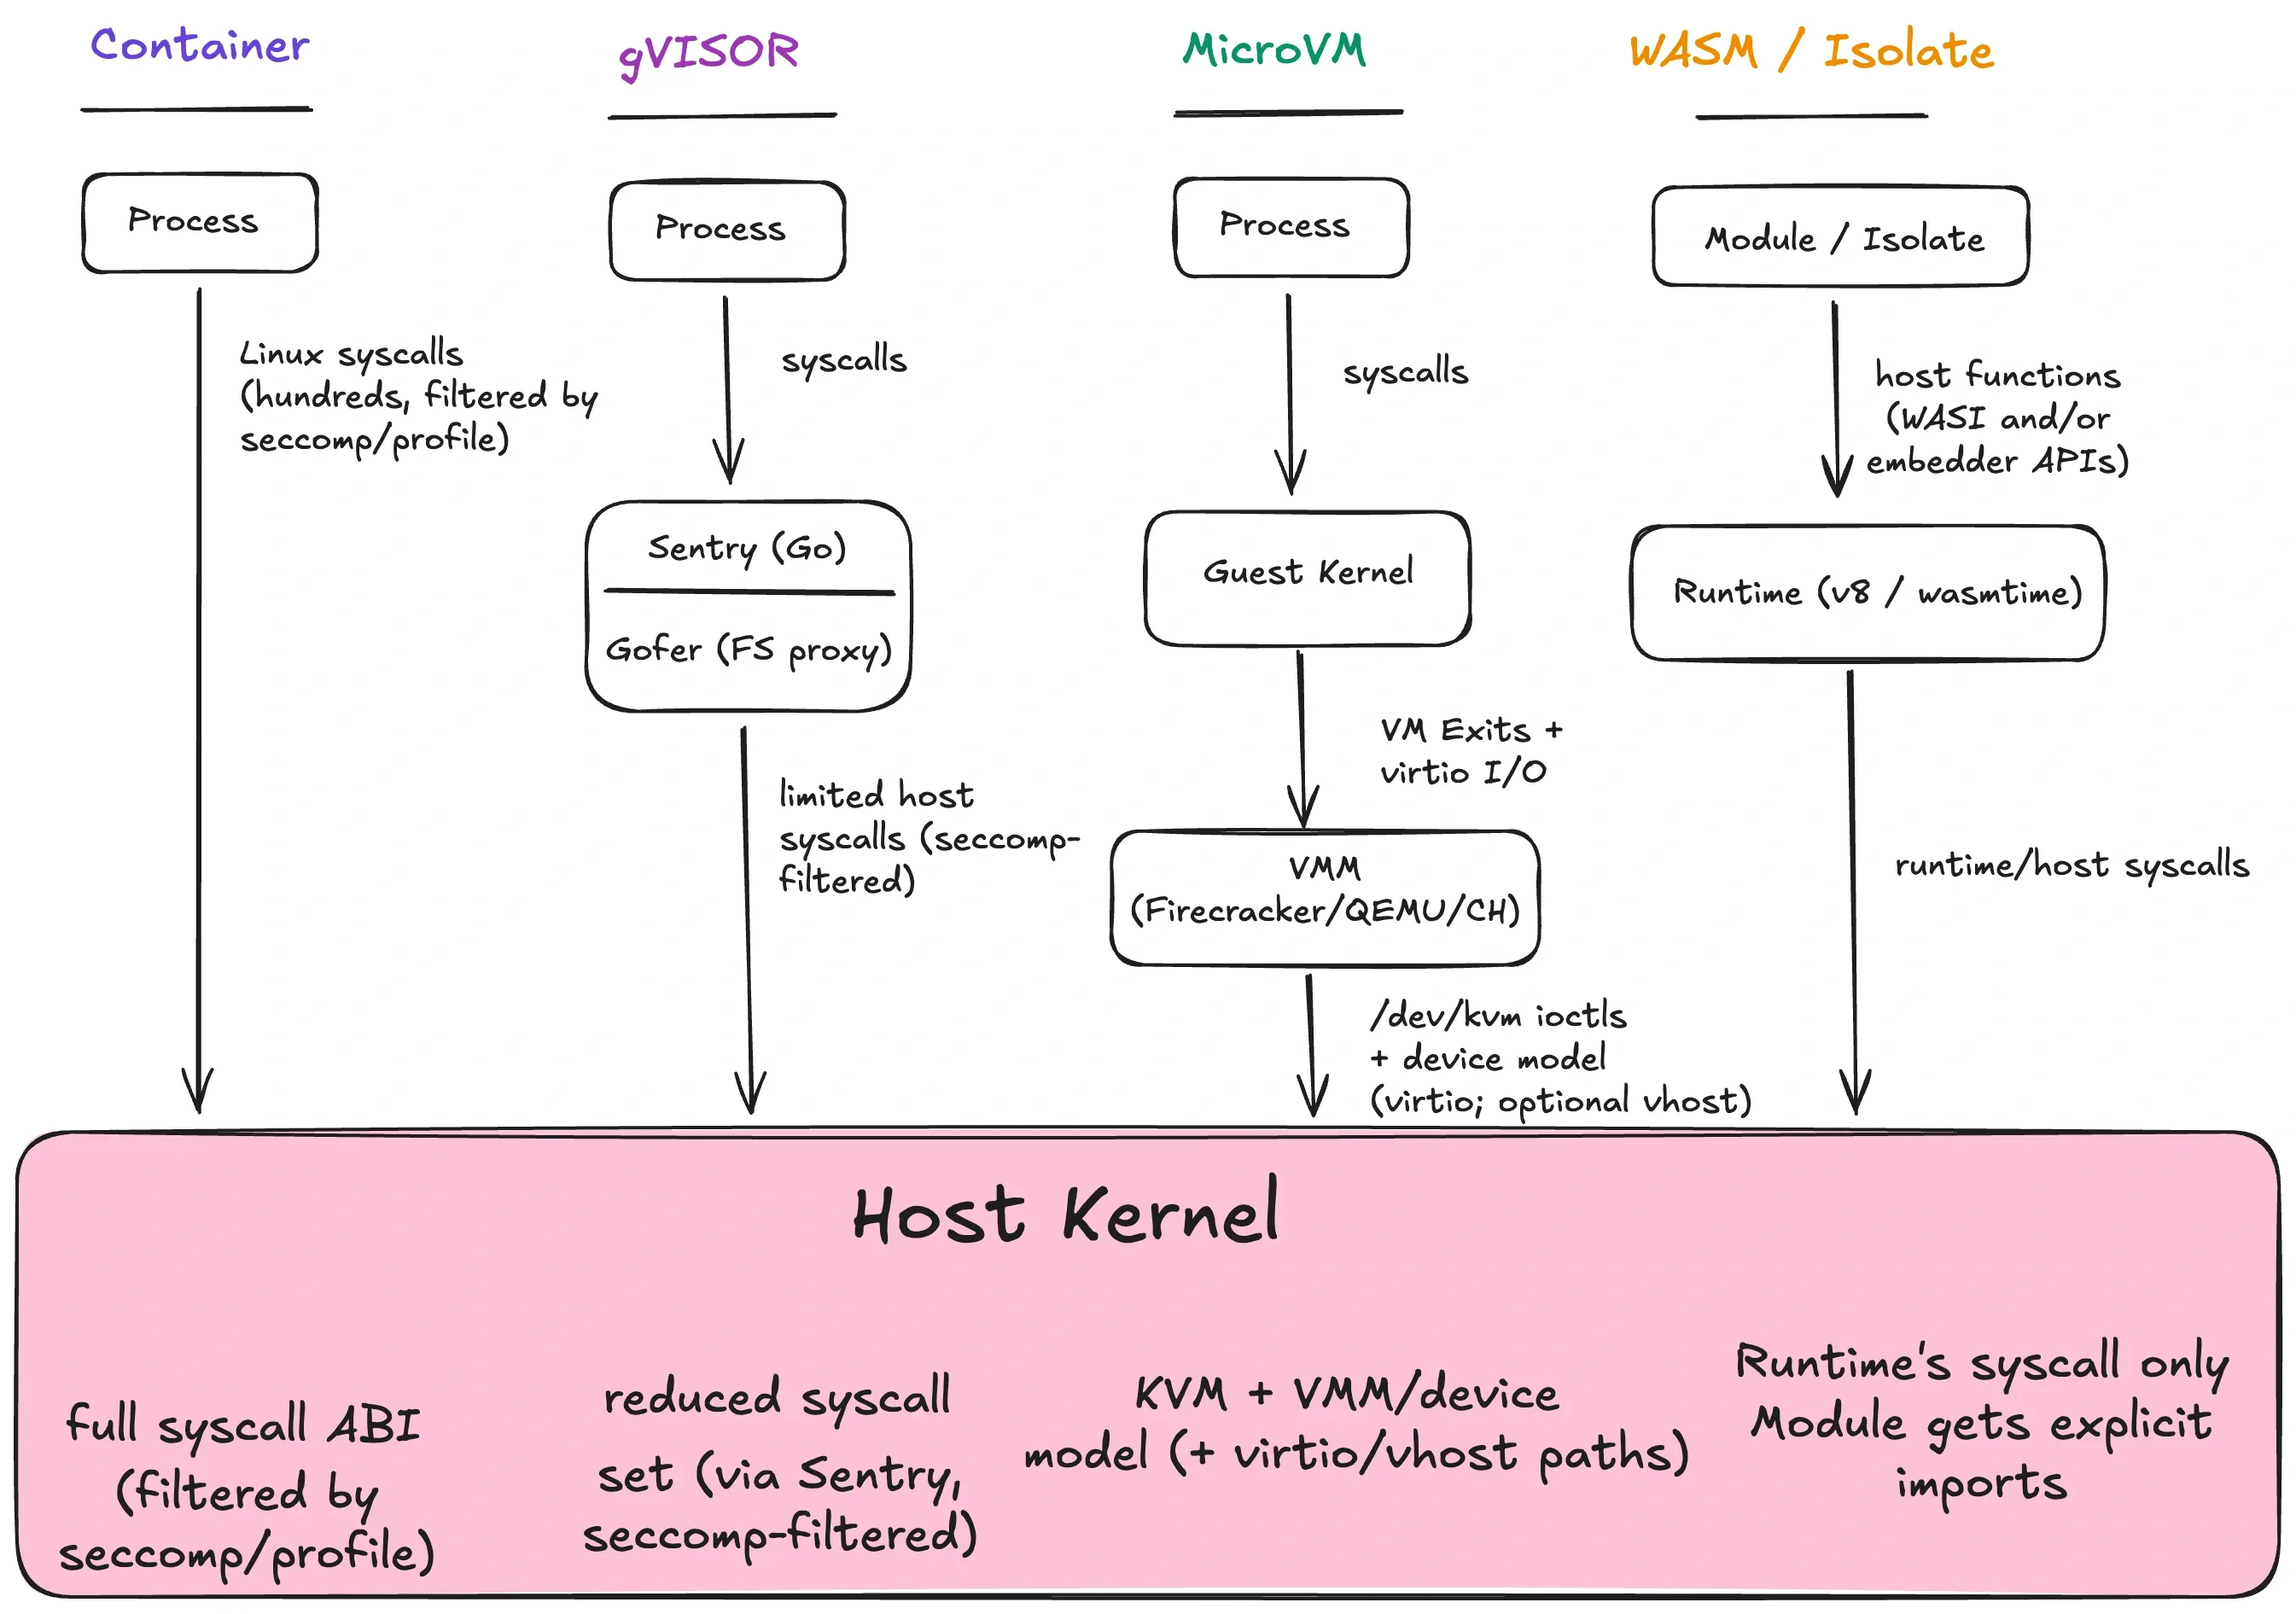 Container
gVISOR
MicroVM
WASM / Isolate
Process
Process
Process
Module / Isolate
Linux syscalls
(hundreds, filtered by
seccomp/profile)
syscalls
syscalls
host functions
(WASI and/or
embedder APIs)
Sentry (Go)
Gofer (FS proxy)
Guest Kernel
Runtime (v8 / wasmtime)
limited host
syscalls (seccomp-
filtered)
VM Exits +
virtio I/O
VMM
(Firecracker/QEMU/CH)
runtime/host syscalls
/dev/kvm ioctls
+ device model
(virtio; optional vhost)
Host Kernel
full syscall ABI
(filtered by
seccomp/profile)
reduced syscall
set (via Sentry,
seccomp-filtered)
KVM + VMM/device
model (+ virtio/vhost paths)
Runtime's syscall only
Module gets explicit
imports